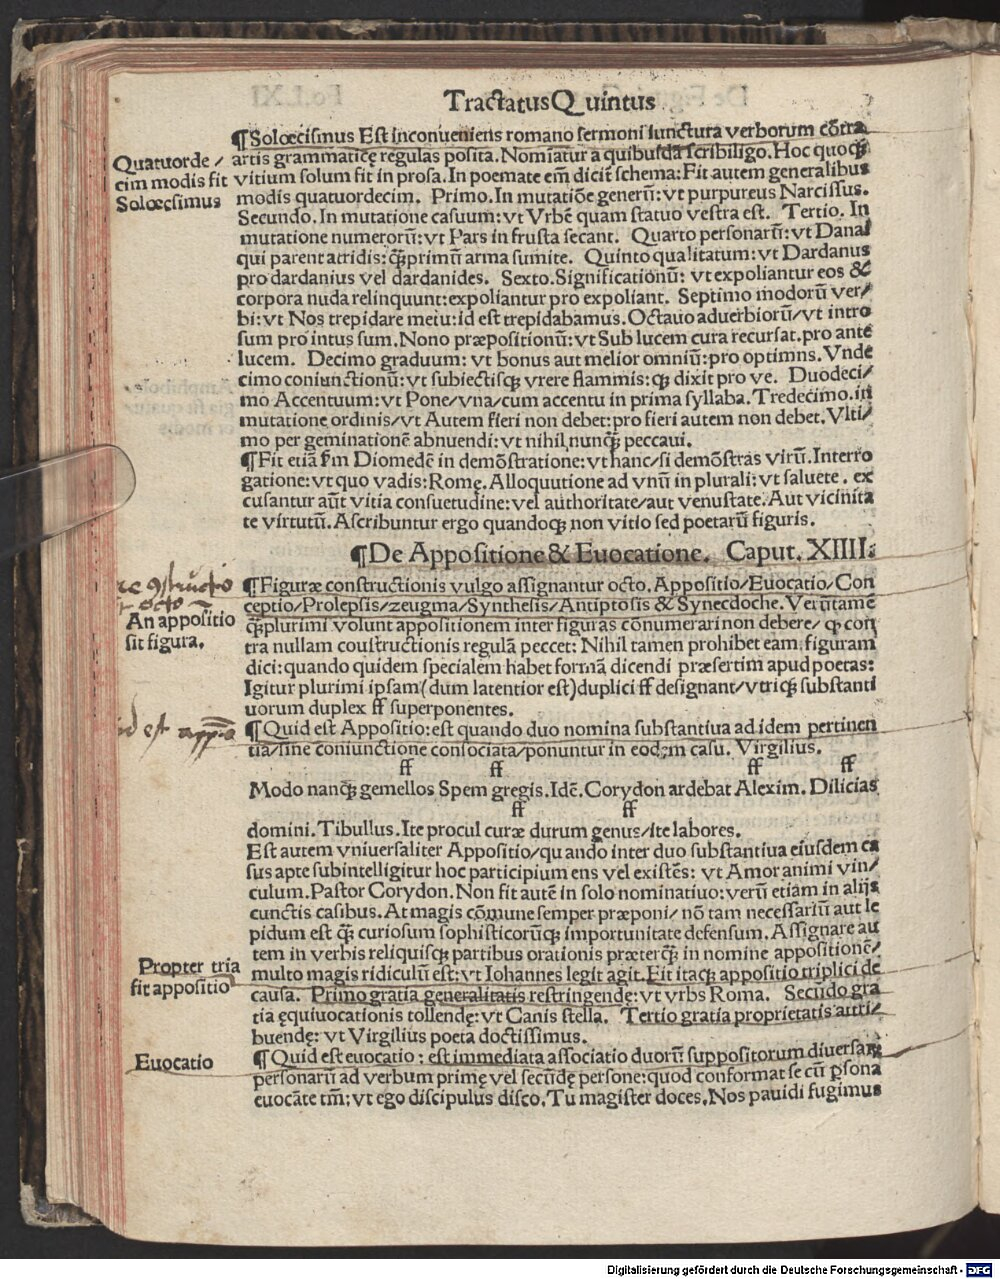 Tractatus Quintus
¶Solœcismus Est inconueniens romano sermoni iunctura verborum cōtra
Quatuorde/
cim modis fit
Solœcsimus
artis grammaticę regulas posita. Nomiatur a quibusdā scribiligo. Hoc quoqꝫ
vitium solum fit in prosa. In poemate em̄ dicit̄ schema: Fit autem generalibus
modis quatuordecim. Primo. In mutatiōe generū: vt purpureus Narcissus.
Secundo. In mutatione casuum: vt Vrbē quam statuo vestra est. Tertio. In
mutatione numerorū: vt Pars in frusta secant. Quarto personarū: vt Danai
qui parent atridis: q̄ꝫprimū arma sumite. Quinto qualitatum: vt Dardanus
pro dardanius vel dardanides. Sexto. Significationū: vt expoliantur eos &
corpora nuda relinquunt: expoliantur pro expoliant. Septimo modorū ver/
bi: vt Nos trepidare metu: id est trepidabamus. Octauo aduerbiorū/vt intro
sum pro intus sum. Nono præpositionū: vt Sub lucem cura recursat. pro ante
lucem. Decimo graduum: vt bonus aut melior omniū: pro optimns. Vnde
cimo coniunctionū: vt subiectisqꝫ vrere flammis: qꝫ dixit pro ve. Duodeci/
mo Accentuum: vt Pone/vna/cum accentu in prima syllaba. Tredecimo. in
mutatione ordinis/vt Autem fieri non debet: pro fieri autem non debet. Vlti/
mo per geminationē abnuendi: vt nihil nunq̄ꝫ peccaui.
¶Fit etiā fm Diomedē in demōstratione: vt hanc/si demōstras virū. Interro
gatione: vt quo vadis: Romę. Alloquutione ad vnū in plurali: vt saluete. ex
cusantur aūt vitia consuetudine: vel authoritate/aut venustate. Aut vicinita
te virtutū. Ascribuntur ergo quandoqꝫ non vitio sed poetarū figuris.
¶De Appositione & Euocatione. Caput. XIIII.
¶Figuræ constructionis vulgo assignantur octo. Appositio/Euocatio/Con
ceptio/Prolepsis/zeugma/Synthesis/Antiptosis & Synecdoche. Verūtamē
An appositio
sit figura.
q̄ꝫplurimi volunt appositionem inter figuras cōnumerari non debere/ qꝫ con
tra nullam coustructionis regulā peccet: Nihil tamen prohibet eam figuram
dici: quando quidem specialem habet formā dicendi præsertim apud poetas:
Igitur plurimi ipsam (dum latentior est) duplici ff designant/vtriqꝫ substanti
uorum duplex ff superponentes.
id est appō
¶Quid est Appositio: est quando duo nomina substantiua ad idem pertinen
tia/sine coniunctione consociata/ponuntur in eodem casu. Virgilius.
ff ff ff ff
Modo nanqꝫ gemellos Spem gregis. Idē. Corydon ardebat Alexim. Dilicias
ff ff
domini. Tibullus. Ite procul curæ durum genus/ite labores.
Est autem vniuersaliter Appositio/quando inter duo substantiua eiusdem ca
sus apte subintelligitur hoc participium ens vel existēs: vt Amor animi vin/
culum. Pastor Corydon. Non fit autē in solo nominatiuo: verū etiam in alijs
cunctis casibus. At magis cōmune semper præponi/ nō tam necessariū aut le
pidum est q̄ꝫ curiosum sophisticorūqꝫ importunitate defensum. Assignare au
tem in verbis reliquisqꝫ partibus orationis præterq̄ꝫ in nomine appositionē/
Propter tria
fit appositio
multo magis ridiculū est: vt Iohannes legit agit. Fit itaqꝫ appositio triplici de
causa. Primo gratia generalitatis restringendę: vt vrbs Roma. Secūdo gra
tia ęquiuocationis tollendę: vt Canis stella. Tertio gratia proprietatis attri/
buendę: vt Virgilius poeta doctissimus.
Euocatio
¶Quid est euocatio: est immediata associatio duorū suppositorum diuersarꝫ
personarū ad verbum primę vel secūdę persone: quod conformat se cū ꝑsona
euocāte tm̄: vt ego discipulus disco. Tu magister doces. Nos pauidi fugimus
Digitalisierung gefördert durch die Deutsche Forschungsgemeinschaft - DFG